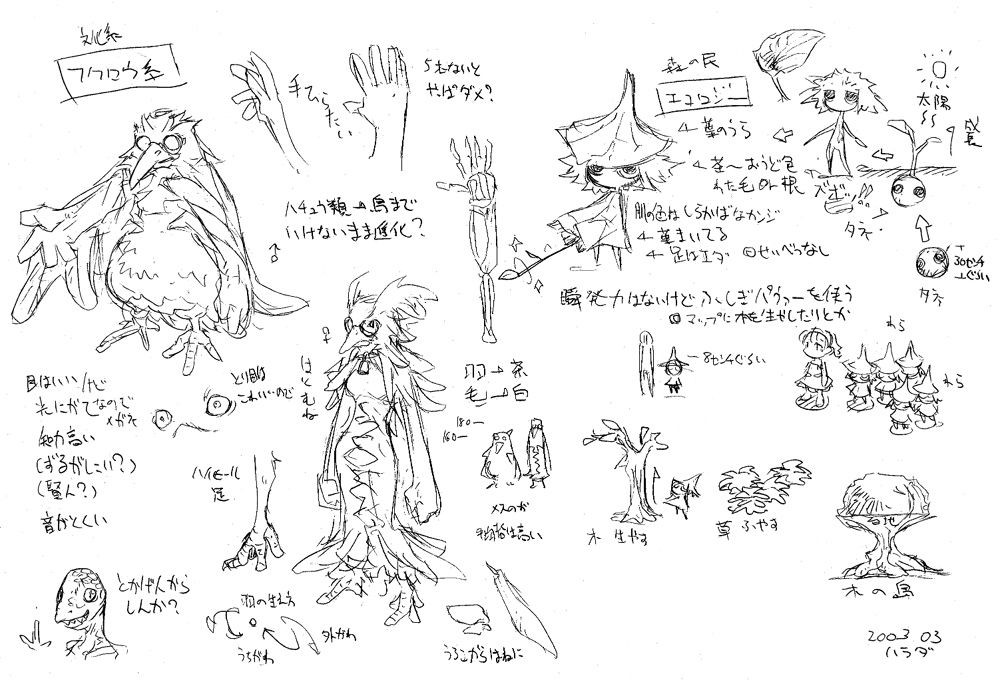 文化系
フクロウ系
手ひら
たい
5本ないと
やっぱダメ?
ハチュウ類→鳥まで
いけないまま進化?
♂
♀
はともね
目はいいんで
光にがてなので
メガネ
知力高い
(ずるがしこい?)
(賢人?)
音がとくい
とり目は
こわいーので
ハイヒール
足
羽→茶
毛→白
180
160
メスのが
身長は高い
とかげんから
しんか?
羽の生え方
うちがわ
外がわ
うろこからはねに
森の民
エコロジー
葉のうら
茶〜おうど色
わた毛OR根
肌の色はしらかばなカンジ
葉まいてる
足はエダ
◎せいべつなし
瞬発力はないけどふしぎパウァーを使う
◎マップに木を生やしたりとか
太陽
成長
ズボッ!!
タネ
30センチ
ぐらい
タネ
8センチぐらい
わら
わら
木 生やす
草 ふやす
台地
木の島
2003 03
ハラダ